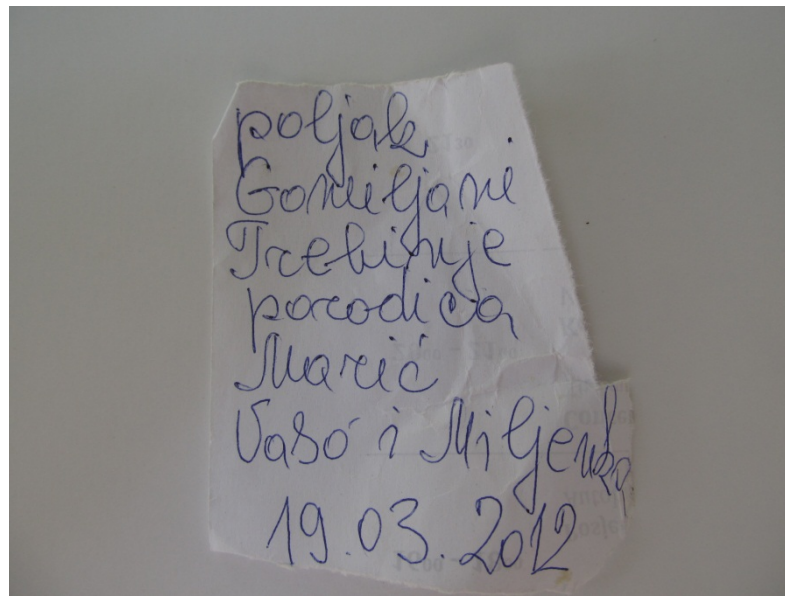 poljak
Gomiljani
Trebinje
porodica
Marić
Vaso i Miljenka
19.03.2012